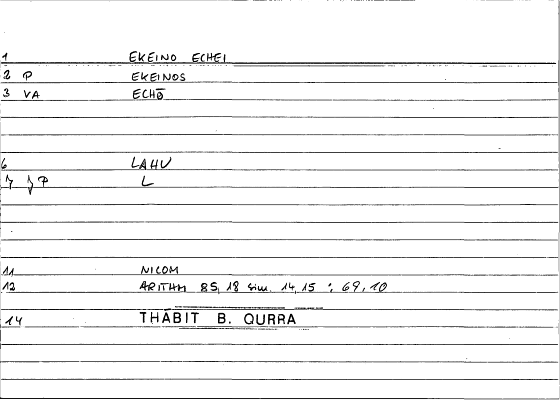 1 EKEINO ECHEI
2 P EKEINOS
3 VA ECHŌ
6 LAHU
7 P L
11 NICOM
12 ARITHM 85, 18 sim. 14, 15 : 69, 10
14 THĀBIT B. QURRA